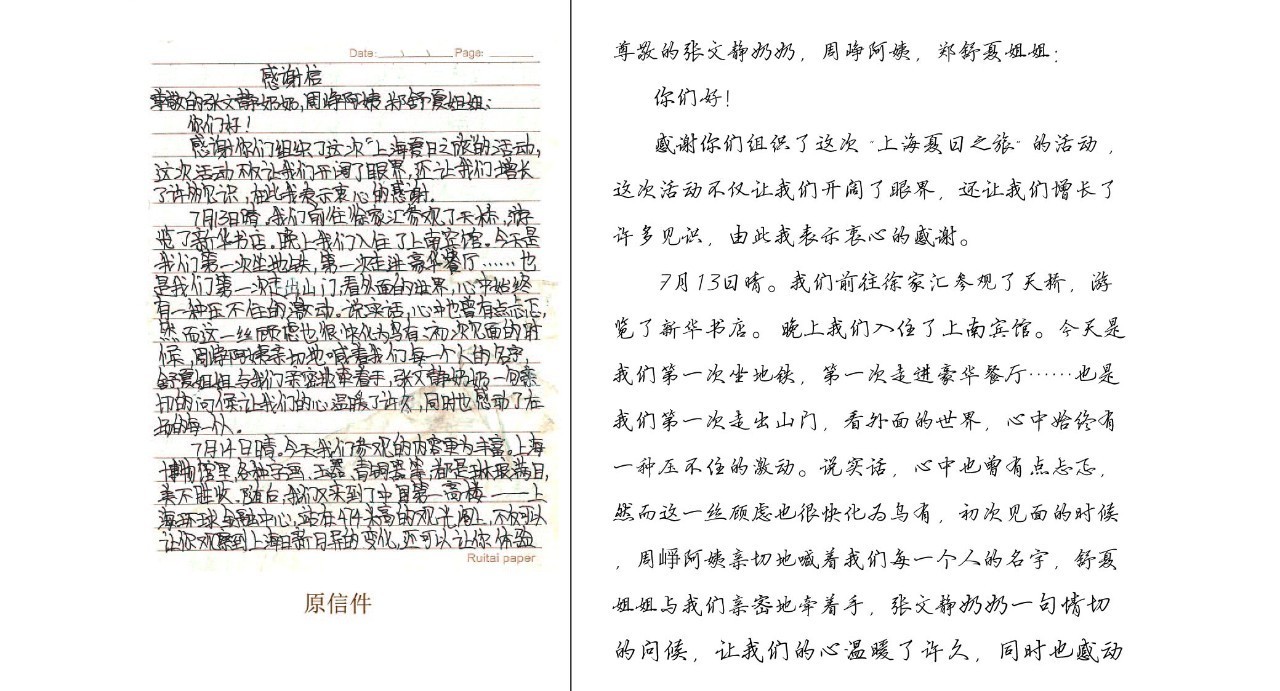 Date: Page:
感谢信
尊敬的张文静奶奶,周峥阿姨,郑舒夏姐姐:
你们好!
感谢你们组织了这次“上海夏日之旅”的活动,
这次活动不仅让我们开阔了眼界,还让我们增长
了许多见识,由此我表示衷心的感谢.
7月13日晴,我们前往徐家汇参观了天桥,游
览了新华书店.晚上我们入住了上南宾馆.今天是
我们第一次坐地铁,第一次走进豪华餐厅……也
是我们第一次走出山门,看外面的世界,心中始终
有一种压不住的激动.说实话,心中也曾有点忐忑,
然而这一丝顾虑也很快化为乌有,初次见面的时
候,周峥阿姨亲切地喊着我们每一个人的名字,
舒夏姐姐与我们亲密地牵着手,张文静奶奶一句亲
切的问候让我们的心温暖了许久,同时也感动了在
场的每一个人.
7月14日晴.今天我们参观的内容更为丰富.上海
博物馆里,各种字画、玉器、青铜器等,都是琳琅满目,
美不胜收.随后,我们又来到了中国第一高楼——上
海环球金融中心,站在474米高的观光阁上,不仅可以
让你观察到上海日新月异的变化,还可以让你体验
Ruitai paper
原信件
尊敬的张文静奶奶,周峥阿姨,郑舒夏姐姐:
你们好!
感谢你们组织了这次“上海夏日之旅”的活动,
这次活动不仅让我们开阔了眼界,还让我们增长了
许多见识,由此我表示衷心的感谢。
7月13日晴。我们前往徐家汇参观了天桥,游
览了新华书店。晚上我们入住了上南宾馆。今天是
我们第一次坐地铁,第一次走进豪华餐厅……也是
我们第一次走出山门,看外面的世界,心中始终有
一种压不住的激动。说实话,心中也曾有点忐忑,
然而这一丝顾虑也很快化为乌有,初次见面的时候
,周峥阿姨亲切地喊着我们每一个人的名字,舒夏
姐姐与我们亲密地牵着手,张文静奶奶一句情切
的问候,让我们的心温暖了许久,同时也感动